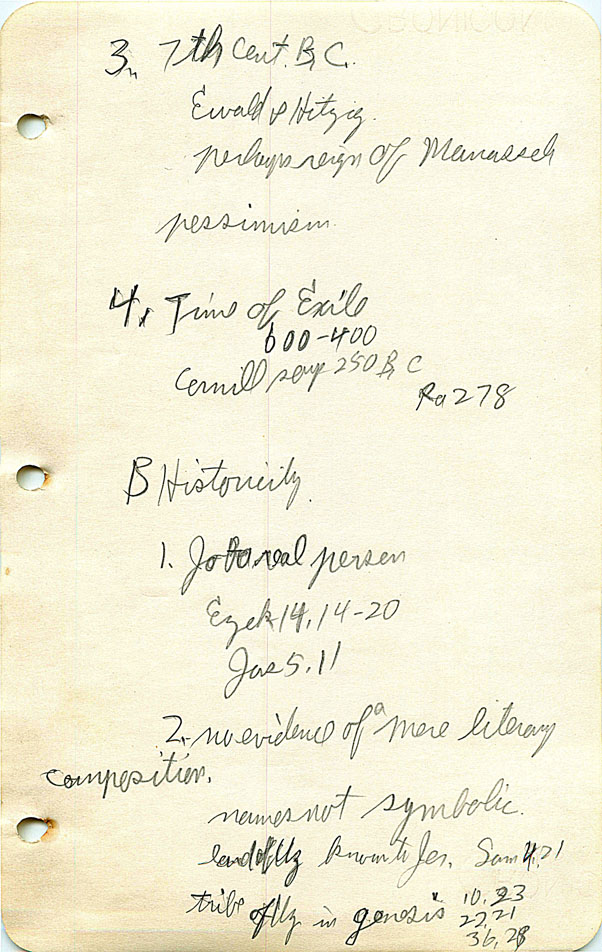 3. 7th Cent. B.C.
Ewald & Hitzig.
perhaps reign of Manasseh
pessimism
4. Time of Exile
600-400
Cornill says 250 B C
Ra 278
B Historicity.
1. Job a real person
Ezek 14, 14-20
Jas 5.11
2. no evidence of a mere literary
composition.
names not symbolic.
land of Uz known to Jer. Lam 4, 21
tribe of Uz in genesis 10, 23
22, 21
36, 28